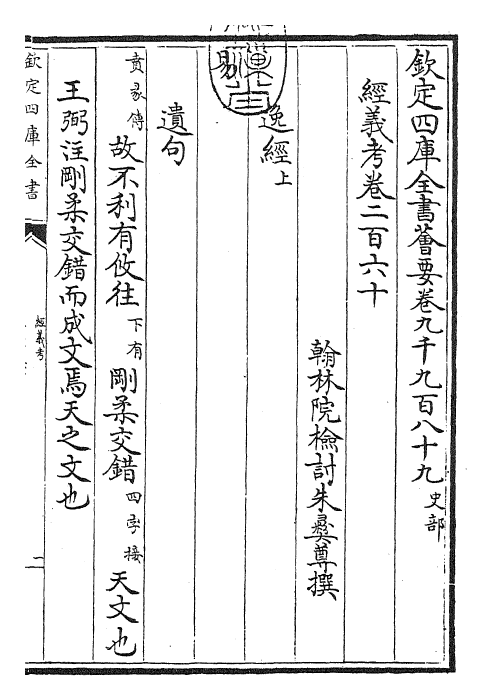 欽定四庫全書薈要卷九千九百八十九 史部
經義考卷二百六十
翰林院檢討朱彝尊撰
逸經上
易
遺句
賁彖傳 故不利有攸往 下有 剛柔交錯 四字接 天文也
王弼注剛柔交錯而成文焉天之文也
欽定四庫全書
經義考